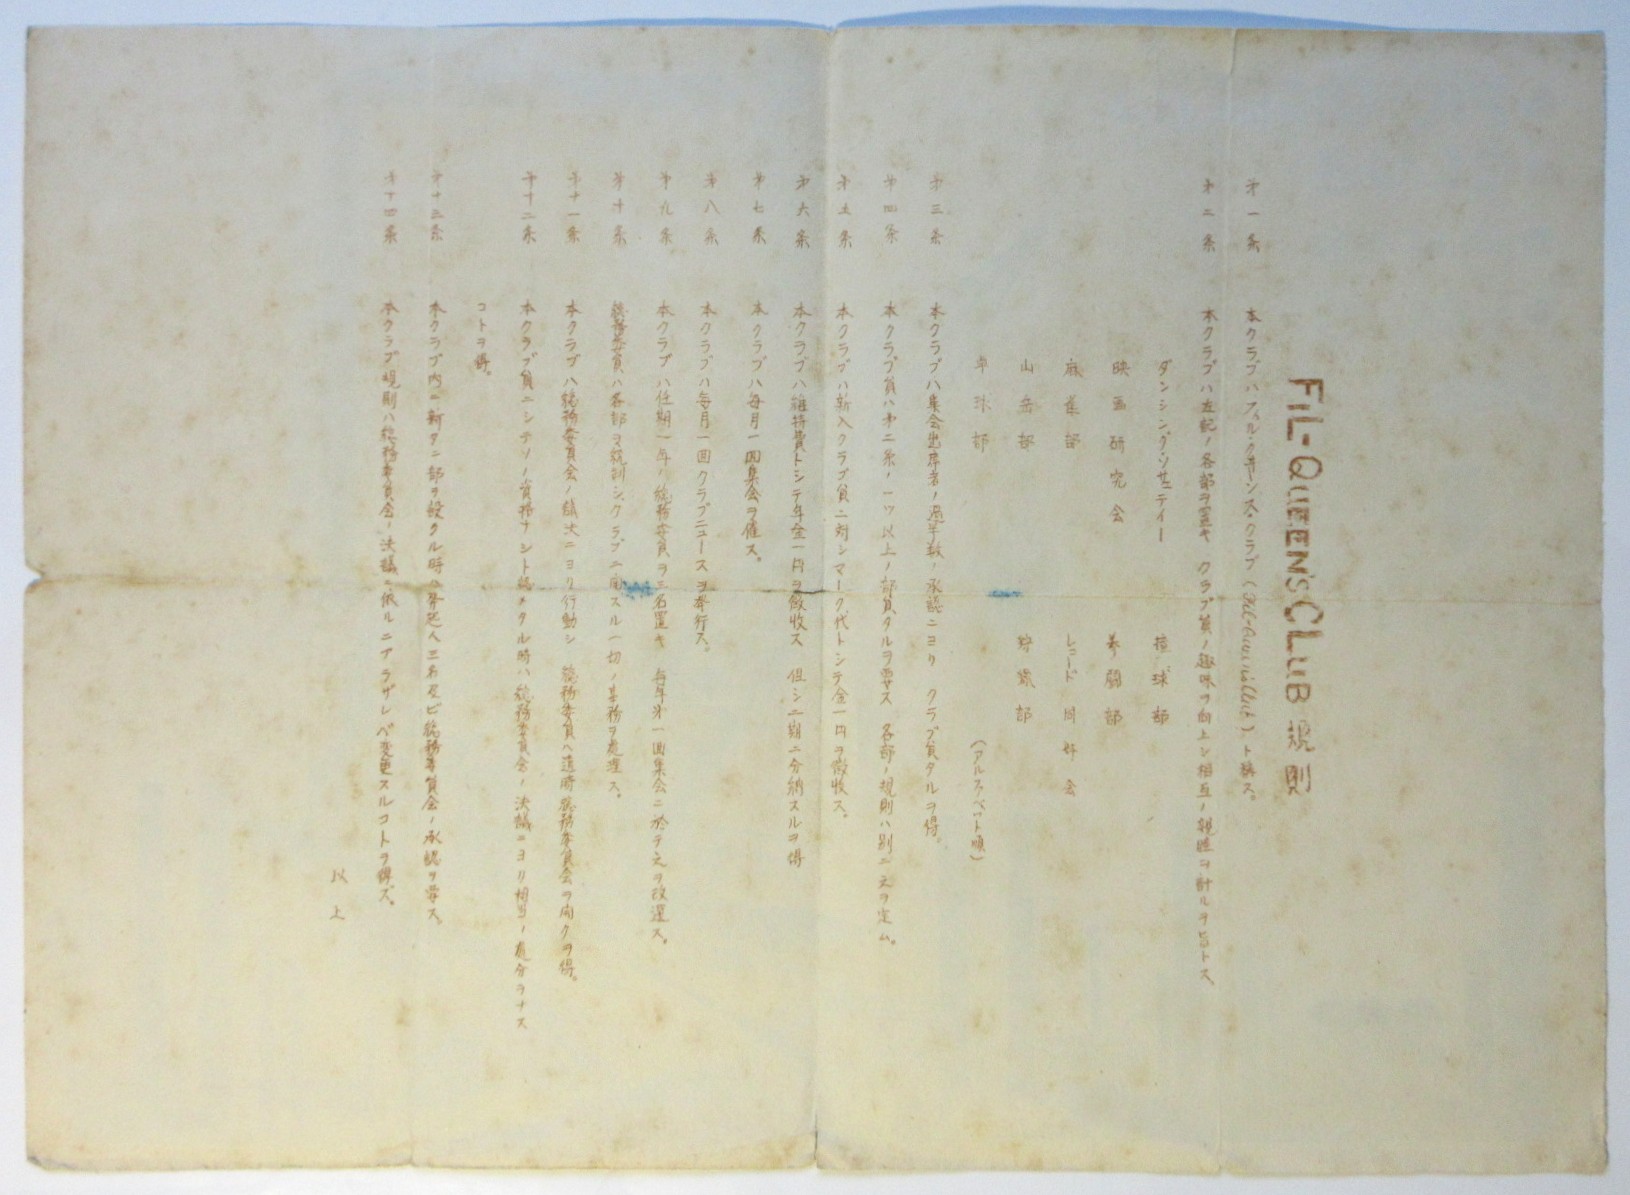 FIL-QUEEN'S CLUB 規則
第一条 本クラブハフィル・クヰンス・クラブ(Fil-Queen's Club)ト称ス。
第二条 本クラブハ左記ノ各部ヲ置キ クラブ員ノ趣味ヲ向上シ相互ノ親睦ヲ計ルヲ旨トス
ダンシング・ソサエティー 撞球部
映画研究会 拳闘部
麻雀部 レコード同好会
山岳部 狩猟部
卓球部 (アルファベット順)
第三条 本クラブハ集会出席者ノ過半数ノ承認ニヨリ クラブ員タルヲ得。
第四条 本クラブ員ハ第二条ノ一ツ以上ノ部員タルヲ要ス 各部ノ規則ハ別ニ之ヲ定ム。
第五条 本クラブハ新入クラブ員ニ対シマーク代トシテ金一円ヲ徴收ス。
第六条 本クラブハ維持費トシテ年金一円ヲ徴收ス 但シ二期ニ分納スルヲ得
第七条 本クラブハ毎月一回集会ヲ催ス。
第八条 本クラブハ毎月一回クラブニュースヲ発行ス。
第九条 本クラブハ任期一年ノ総務委員ヲ三名置キ 毎年第一回集会ニ於テ之ヲ改選ス。
第十条 総務委員ハ各部ヲ統制シクラブニ関スル一切ノ事務ヲ処理ス。
第十一条 本クラブハ総務委員会ノ議決ニヨリ行動シ 総務委員ハ適時総務委員会ヲ開クヲ得。
第十二条 本クラブ員ニシテソノ資格ナシト認メタル時ハ総務委員会ノ決議ニヨリ相当ノ処分ヲナス
コトヲ得。
第十三条 本クラブ内ニ新タニ部ヲ設クル時ハ発起人三名及ビ総務委員会ノ承認ヲ要ス。
第十四条 本クラブ規則ハ総務委員会ノ決議ニ依ルニアラザレバ変更スルコトヲ得ズ。
以上